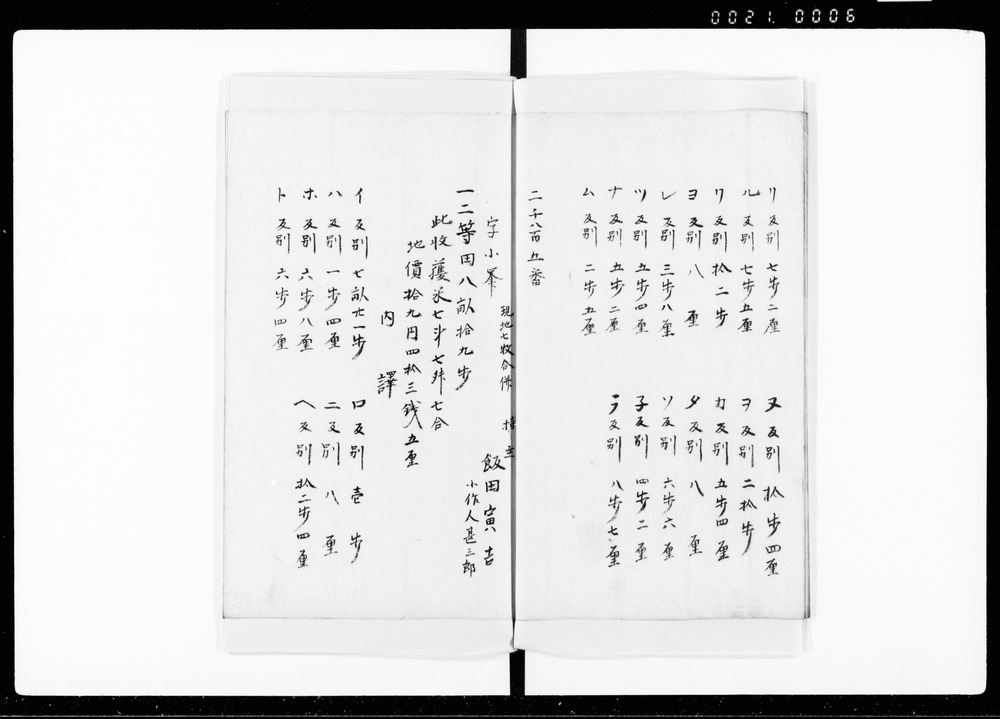 0021.0006
リ反別 七歩二厘 ヌ反別 拾歩四厘
ル反別 七歩五厘 ヲ反別 二拾歩
ワ反別 拾二歩 カ反別 五歩四厘
ヨ反別 八厘 タ反別 八厘
レ反別 三歩八厘 ソ反別 六歩六厘
ツ反別 五歩四厘 子反別 四歩二厘
ナ反別 五歩二厘 ラ反別 八歩七厘
ム反別 二歩五厘
二千八百五番
字小峯 現地七牧合併 持主 飯田寅吉
小作人甚三郎
一二等田八畝拾九歩
此收獲米七斗七舛七合
地價拾九円四拾三銭五厘
内譯
イ反別 七畝廿一歩 ロ反別 壱歩
ハ反別 一歩四厘 ニ反別 八厘
ホ反別 六歩八厘 ヘ反別 拾二歩四厘
ト反別 六歩四厘